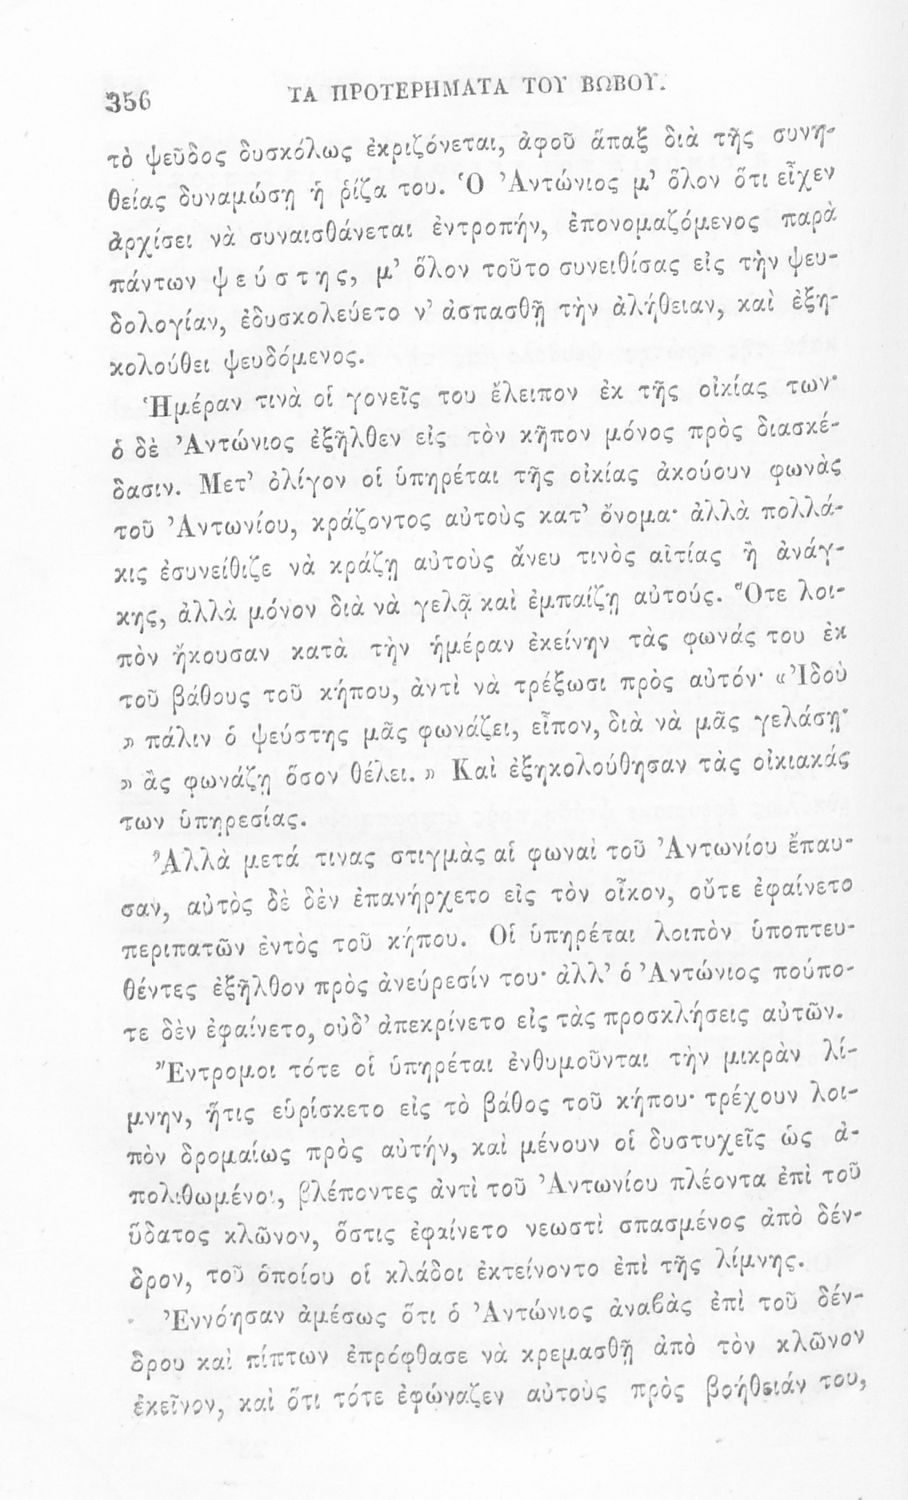 356 ΤΑ ΠΡΟΤΕΡΗΜΑΤΑ ΤΟΥ ΒΩΒΟΥ.
τὸ ψεῦδος δυσκόλως ἐκριζόνεται, ἀφοῦ ἅπαξ διὰ τῆς συνη-
θείας δυναμώσῃ ἡ ῥίζα του. Ὁ Ἀντώνιος μ’ ὅλον ὅτι εἶχεν
ἀρχίσει νὰ συναισθάνεται ἐντροπήν, ἐπονομαζόμενος παρὰ
πάντων ψεύστης, μ’ ὅλον τοῦτο συνειθίσας εἰς τὴν ψευ-
δολογίαν, ἐδυσκολεύετο ν’ ἀσπασθῇ τὴν ἀλήθειαν, καὶ ἐξη-
κολούθει ψευδόμενος.
Ἡμέραν τινὰ οἱ γονεῖς του ἔλειπον ἐκ τῆς οἰκίας των·
ὁ δὲ Ἀντώνιος ἐξῆλθεν εἰς τὸν κῆπον μόνος πρὸς διασκέ-
δασιν. Μετ’ ὀλίγον οἱ ὑπηρέται τῆς οἰκίας ἀκούουν φωνὰς
τοῦ Ἀντωνίου, κράζοντος αὐτοὺς κατ’ ὄνομα· ἀλλὰ πολλά-
κις ἐσυνείθιζε νὰ κράζῃ αὐτοὺς ἄνευ τινὸς αἰτίας ἢ ἀνάγ-
κης, ἀλλὰ μόνον διὰ νὰ γελᾷ καὶ ἐμπαίζῃ αὐτούς. Ὅτε λοι-
πὸν ἤκουσαν κατὰ τὴν ἡμέραν ἐκείνην τὰς φωνάς του ἐκ
τοῦ βάθους τοῦ κήπου, ἀντὶ νὰ τρέξωσι πρὸς αὐτόν· «Ἰδοὺ
» πάλιν ὁ ψεύστης μᾶς φωνάζει, εἶπον, διὰ νὰ μᾶς γελάσῃ·
» ἂς φωνάζῃ ὅσον θέλει. » Καὶ ἐξηκολούθησαν τὰς οἰκιακάς
των ὑπηρεσίας.
Ἀλλὰ μετά τινας στιγμὰς αἱ φωναὶ τοῦ Ἀντωνίου ἔπαυ-
σαν, αὐτὸς δὲ δὲν ἐπανήρχετο εἰς τὸν οἶκον, οὔτε ἐφαίνετο
περιπατῶν ἐντὸς τοῦ κήπου. Οἱ ὑπηρέται λοιπὸν ὑποπτευ-
θέντες ἐξῆλθον πρὸς ἀνεύρεσίν του· ἀλλ’ ὁ Ἀντώνιος πούπο-
τε δὲν ἐφαίνετο, οὐδ’ ἀπεκρίνετο εἰς τὰς προσκλήσεις αὐτῶν.
Ἔντρομοι τότε οἱ ὑπηρέται ἐνθυμοῦνται τὴν μικρὰν λί-
μνην, ἥτις εὑρίσκετο εἰς τὸ βάθος τοῦ κήπου· τρέχουν λοι-
πὸν δρομαίως πρὸς αὐτήν, καὶ μένουν οἱ δυστυχεῖς ὡς ἀ-
πολιθωμένοι, βλέποντες ἀντὶ τοῦ Ἀντωνίου πλέοντα ἐπὶ τοῦ
ὕδατος κλῶνον, ὅστις ἐφαίνετο νεωστὶ σπασμένος ἀπὸ δέν-
δρον, τοῦ ὁποίου οἱ κλάδοι ἐκτείνοντο ἐπὶ τῆς λίμνης.
Ἐννόησαν ἀμέσως ὅτι ὁ Ἀντώνιος ἀναβὰς ἐπὶ τοῦ δέν-
δρου καὶ πίπτων ἐπρόφθασε νὰ κρεμασθῇ ἀπὸ τὸν κλῶνον
ἐκεῖνον, καὶ ὅτι τότε ἐφώναζεν αὐτοὺς πρὸς βοήθειάν του,